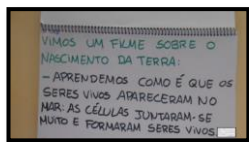 VIMOS UM FILME SOBRE O
NASCIMENTO DA TERRA:
- APRENDEMOS COMO É QUE OS
SERES VIVOS APARECERAM NO
MAR: AS CÉLULAS JUNTARAM-SE
MUITO E FORMARAM SERES VIVOS.